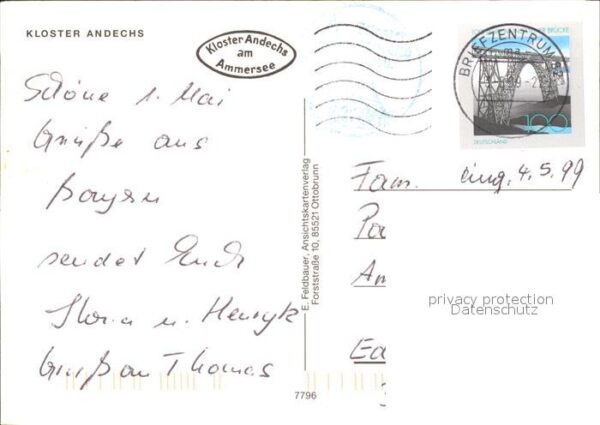 KLOSTER ANDECHS
Kloster Andechs
am
Ammersee
Schöne 1. Mai
Grüße aus
Bayern
sendet Euch
Gloria u. Henryk
Gruß an Thomas
E. Feldbauer, Ansichtskartenverlag
Forststraße 10, 85521 Ottobrunn
7796
BRIEFZENTRUM
BRÜCKE
100
DEUTSCHLAND
Fam. eing. 4.5.99
Pa
Am
Ea
privacy protection
Datenschutz